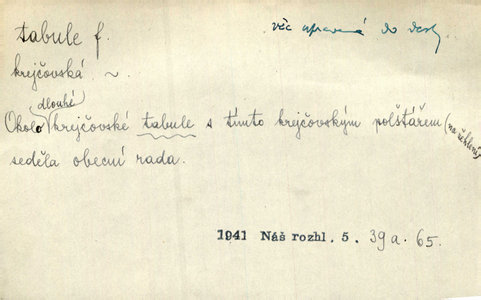 tabule f.
věc upravená do desky.
krejčovská ~.
dlouhé
Okolo krejčovské tabule s tímto krejčovským polštářem (na žehlení)
seděla obecní rada.
1941 Náš rozhl. 5. 39a. 65.